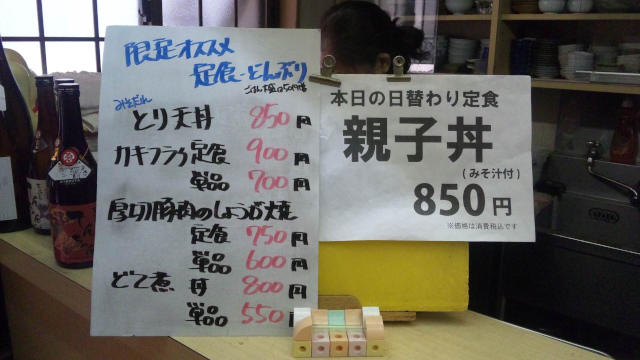 限定オススメ
定食・どんぶり
みそだれ
とり天丼 850円
カキフライ定食 900円
単品 700円
厚切豚肉のしょうが焼
定食 750円
単品 600円
どて煮 丼 800円
単品 550円
本日の日替わり定食
親子丼
(みそ汁付)
850円
※価格は消費税込です